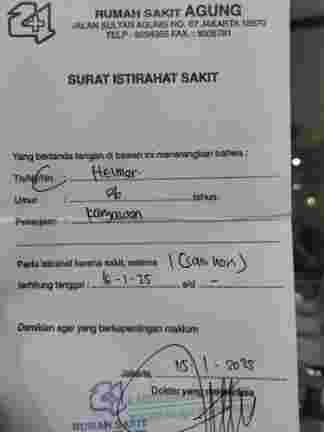 RUMAH SAKIT AGUNG
JALAN SULTAN AGUNG NO. 67 JAKARTA 12970
TELP : 8294955 FAX. : 8305791
SURAT ISTIRAHAT SAKIT
Yang bertanda tangan di bawah ini menerangkan bahwa :
Tn/Ny/Nn : Helmar
Umur : tahun
Pekerjaan : karyawan
Perlu istirahat karena sakit, selama 1 (satu hari)
terhitung tanggal : 16-1-25 s/d -
Demikian agar yang berkepentingan maklum
Jakarta, 15 / 1 - 2025
Dokter yang memeriksa
RUMAH SAKIT